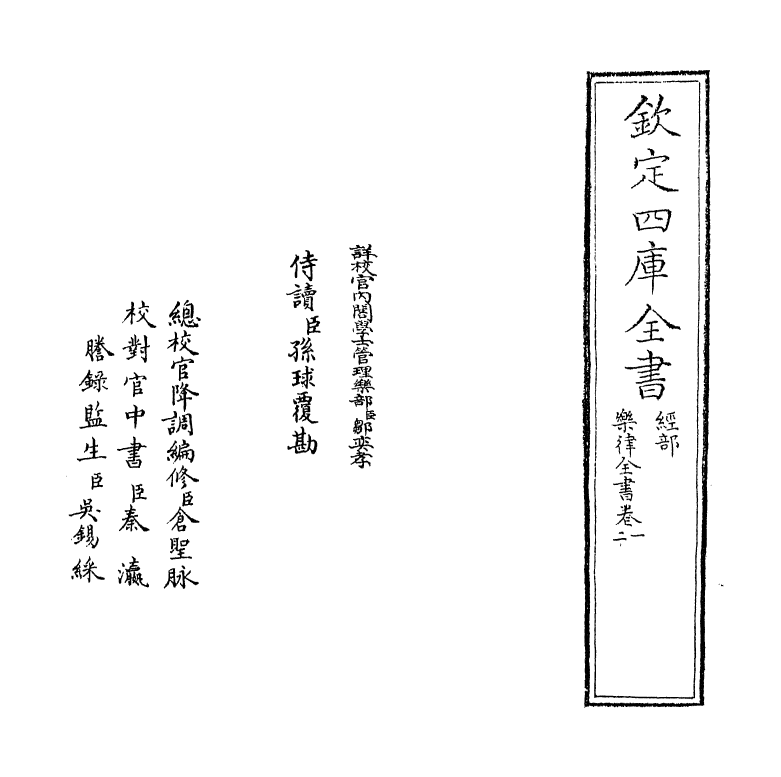 欽定四庫全書
經部
樂律全書卷一
二
詳校官内閣學士管理樂部臣鄒奕孝
侍讀臣孫球覆勘
總校官降調編修臣倉聖脉
校對官中書臣秦瀛
謄錄監生臣吳錫綵